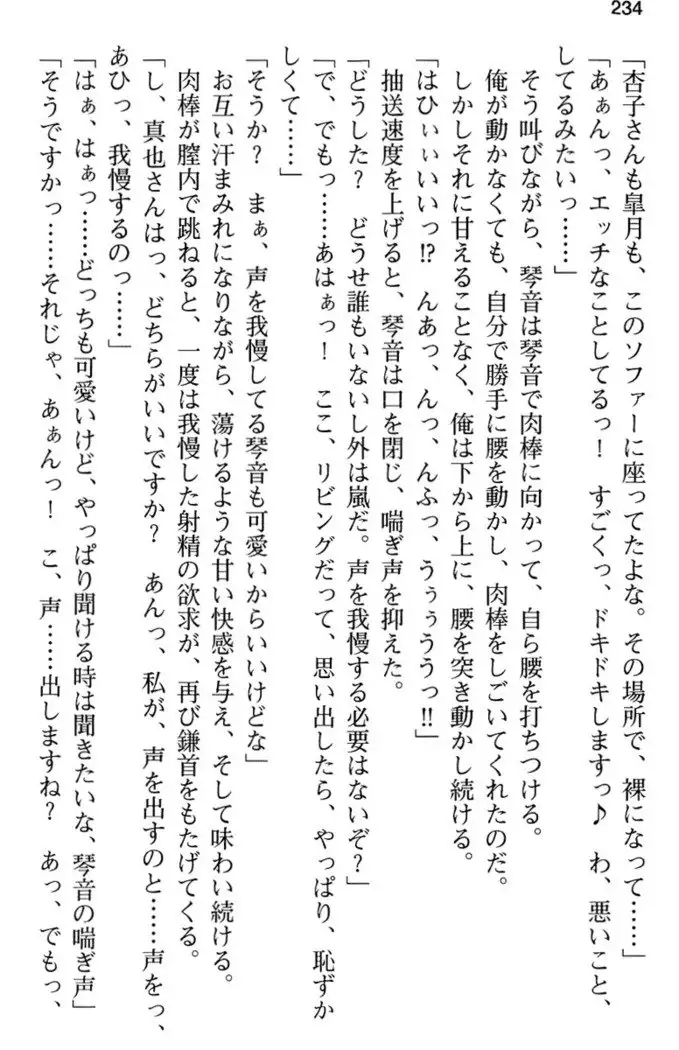 234
「杏子さんも皐月も、このソファーに座ってたよな。その場所で、裸になって……」
「あぁんっ、エッチなことしてるっ！　すごくっ、ドキドキしますっ♪　わ、悪いこと、
してるみたいっ……」
そう叫びながら、琴音は琴音で肉棒に向かって、自ら腰を打ちつける。
俺が動かなくても、自分で勝手に腰を動かし、肉棒をしごいてくれたのだ。
しかしそれに甘えることなく、俺は下から上に、腰を突き動かし続ける。
「はひぃぃいいっ!?　んあっ、んっ、んふっ、うぅぅううっ!!」
抽送速度を上げると、琴音は口を閉じ、喘ぎ声を抑えた。
「どうした？　どうせ誰もいないし外は嵐だ。声を我慢する必要はないぞ？」
「で、でもっ……あはぁっ！　ここ、リビングだって、思い出したら、やっぱり、恥ずか
しくて……」
「そうか？　まぁ、声を我慢してる琴音も可愛いからいいけどな」
お互い汗まみれになりながら、蕩けるような甘い快感を与え、そして味わい続ける。
肉棒が膣内で跳ねると、一度は我慢した射精の欲求が、再び鎌首をもたげてくる。
「し、真也さんはっ、どちらがいいですか？　あんっ、私が、声を出すのと……声をっ、
あひっ、我慢するのっ……」
「はぁ、はぁっ……どっちも可愛いけど、やっぱり聞ける時は聞きたいな、琴音の喘ぎ声」
「そうですかっ……それじゃ、あぁんっ！　こ、声……出しますね？　あっ、でもっ、